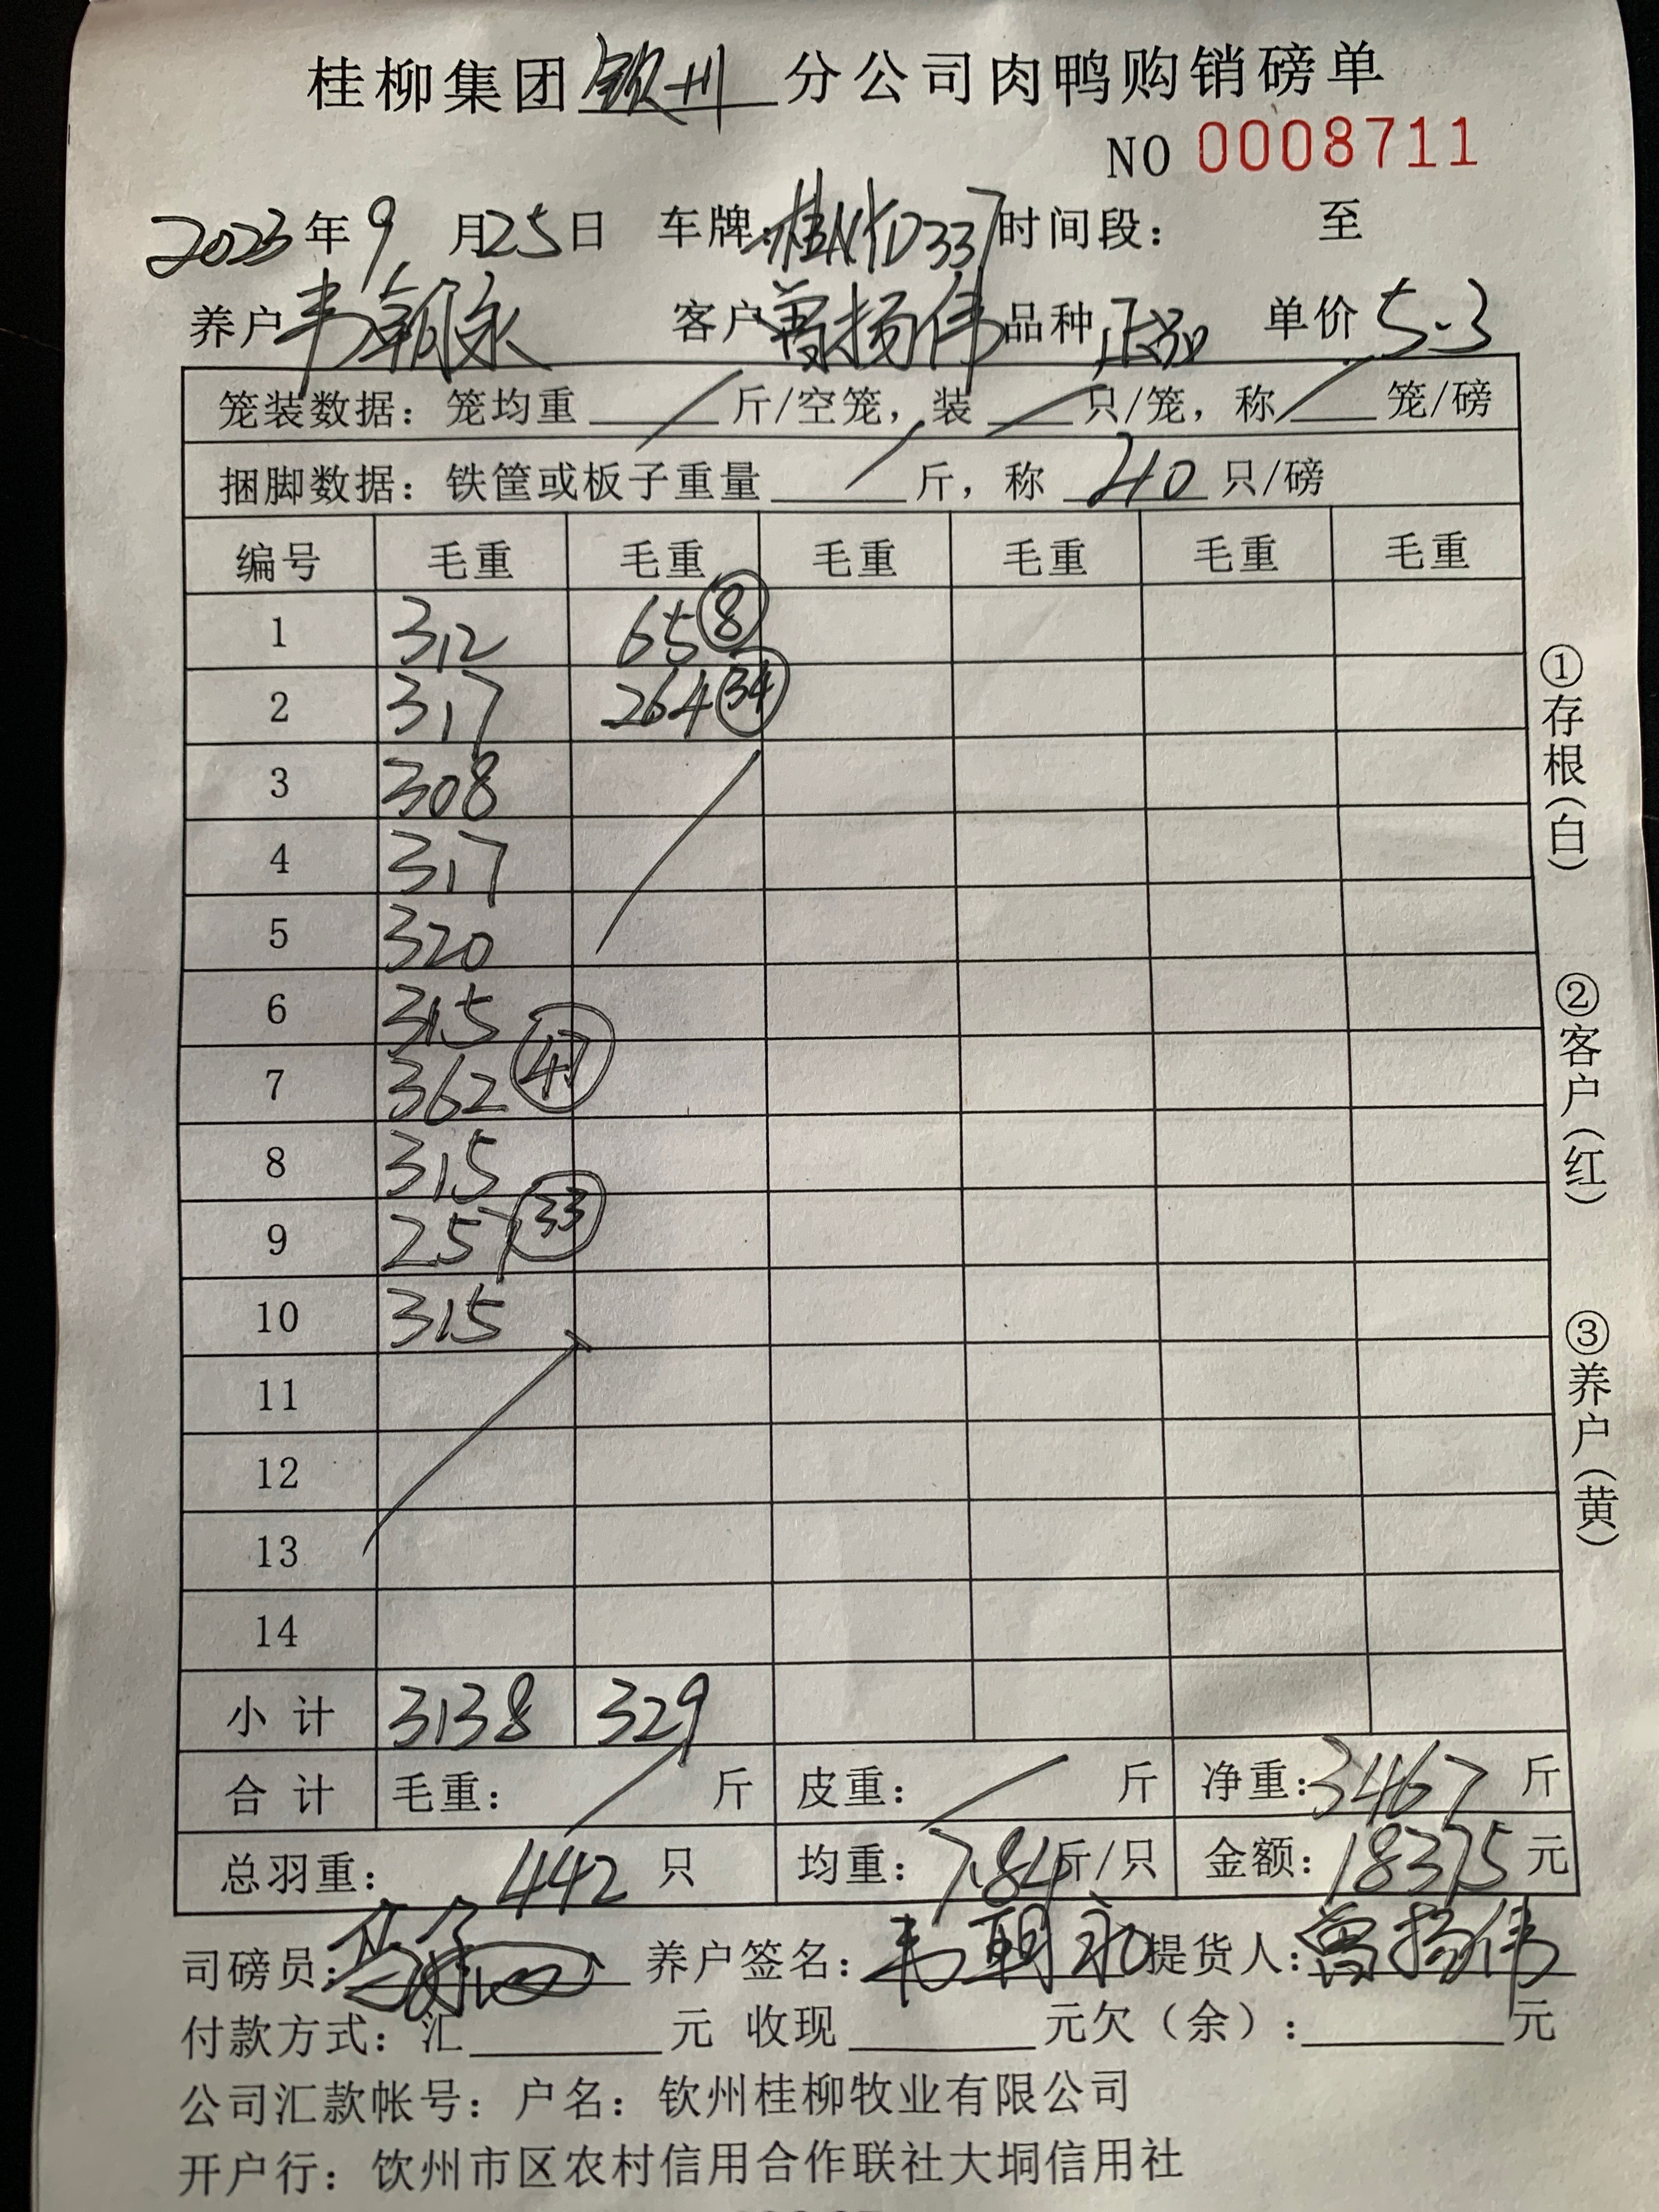 桂柳集团钦州分公司肉鸭购销磅单
NO 0008711
2023年9月25日 车牌:桂NYD337 时间段: 至
养户韦朝永 客户曾扬伟 品种 单价5.3
笼装数据: 笼均重 / 斤/空笼, 装 / 只/笼, 称 / 笼/磅
捆脚数据: 铁筐或板子重量 / 斤, 称 40 只/磅
编号 毛重 毛重 毛重 毛重 毛重 毛重
1 312 65 ⑧
2 317 264 ㉞
3 308
4 317
5 320
6 315
7 362 47
8 315
9 257 ㉝
10 315
11
12
13
14
小计 3138 329
合计 毛重: / 斤 皮重: / 斤 净重:3467 斤
总羽重: 442 只 均重: 7.84 斤/只 金额:18375 元
司磅员: 养户签名:韦朝永 提货人:曾扬伟
付款方式: 汇 元 收现 元欠(余): 元
公司汇款帐号: 户名: 钦州桂柳牧业有限公司
开户行: 钦州市区农村信用合作联社大垌信用社
①存根(白)
②客户(红)
③养户(黄)